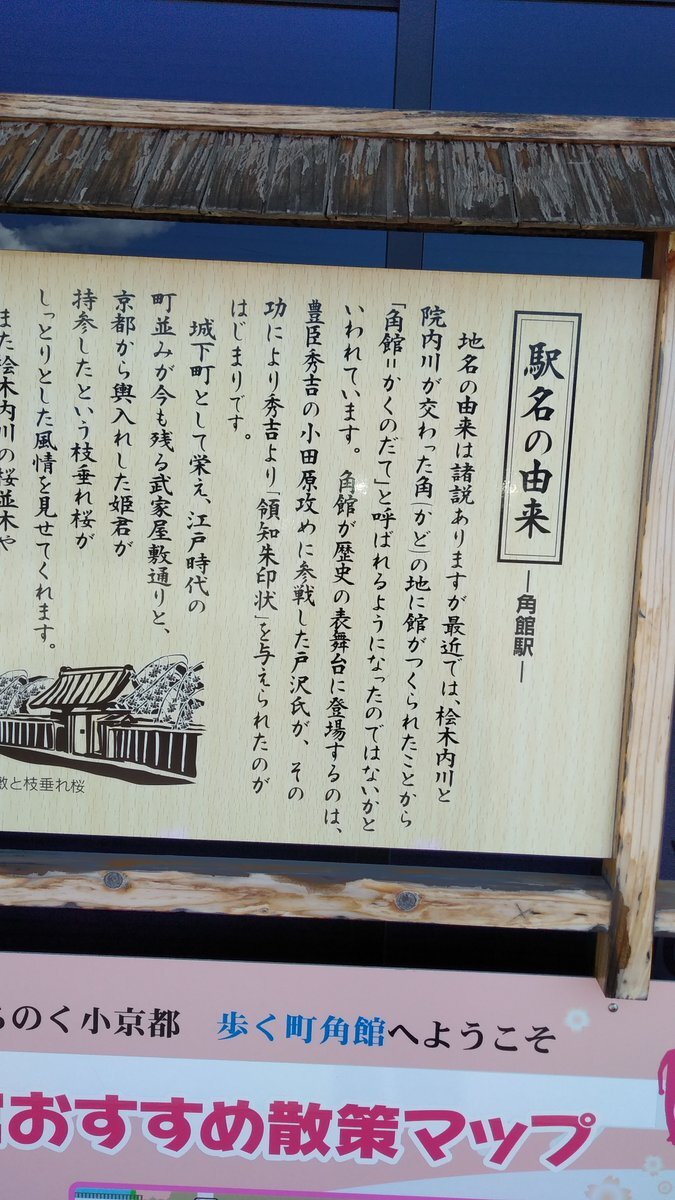 駅名の由来
―角館駅―
地名の由来は諸説ありますが最近では、桧木内川と
院内川が交わった角(かど)の地に館がつくられたことから
「角館=かくのだて」と呼ばれるようになったのではないかと
いわれています。角館が歴史の表舞台に登場するのは、
豊臣秀吉の小田原攻めに参戦した戸沢氏が、その
功により秀吉より「領知朱印状」を与えられたのが
はじまりです。
城下町として栄え、江戸時代の
町並みが今も残る武家屋敷通りと、
京都から輿入れした姫君が
持参したという枝垂れ桜が
しっとりとした風情を見せてくれます。
また桧木内川の桜並木や
敷と枝垂れ桜
のく小京都 歩く町角館へようこそ
おすすめ散策マップ